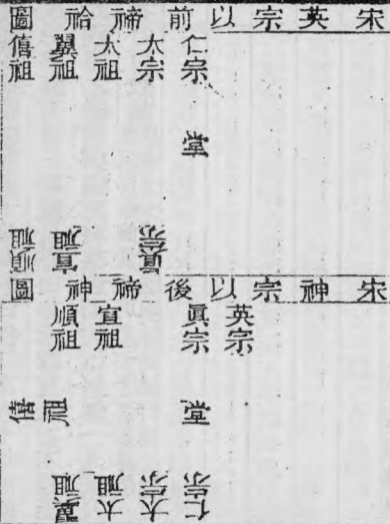 宋英宗以前禘祫圖
仁宗
太宗
太祖
翼祖
僖祖
堂
眞宗
宣祖
順祖
宋神宗以後禘神圖
英宗
眞宗
宣祖
順祖
堂
僖祖
仁宗
太宗
太祖
翼祖